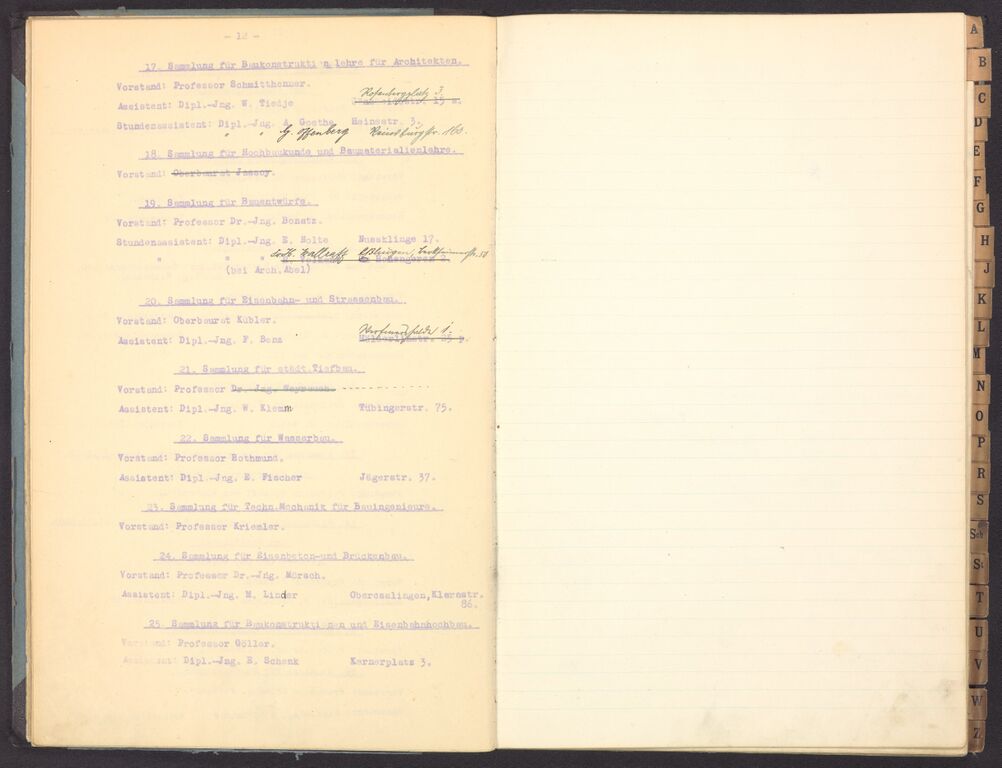 - 12 -
17. Sammlung für Baukonstruktionslehre für Architekten.
Vorstand: Professor Schmitthenner.
Rosenbergplatz 3.
Assistent: Dipl.-Jng. W. Tiedje 15 a.
Stundenassistent: Dipl.-Jng. A. Goethe Heinestr. 3.
" " " G. Offenberg Reinsburgstr. 160.
18. Sammlung für Hochbaukunde und Baumaterialienlehre.
Vorstand: Oberbaurat Jassoy.
19. Sammlung für Bauentwürfe.
Vorstand: Professor Dr.-Jng. Bonatz.
Stundenassistent: Dipl.-Jng. E. Nolte Nussklinge 17.
" " " Wallraff Esslingen,
(bei Arch.Abel)
20. Sammlung für Eisenbahn- und Strassenbau.
Vorstand: Oberbaurat Kübler.
Assistent: Dipl.-Jng. F. Benz Hölderlinstr.
21. Sammlung für städt.Tiefbau.
Vorstand: Professor Dr. Jng. Weyrauch. - - - - - - - - - -
Assistent: Dipl.-Jng. W. Klemm Tübingerstr. 75.
22. Sammlung für Wasserbau.
Vorstand: Professor Rothmund.
Assistent: Dipl.-Jng. E. Fischer Jägerstr. 37.
23. Sammlung für Techn.Mechanik für Bauingenieure.
Vorstand: Professor Kriemler.
24. Sammlung für Eisenbeton-und Brückenbau.
Vorstand: Professor Dr.-Jng. Mörsch.
Assistent: Dipl.-Jng. M. Linder Oberesslingen,Klarastr.
86.
25. Sammlung für Baukonstruktionen und Eisenbahnhochbau.
Vorstand: Professor Göller.
Assistent: Dipl.-Jng. E. Schenk Kernerplatz 3.
A
B
C
D
E
F
G
H
J
K
L
M
N
O
P
R
S
Sch
St
T
U
V
W
Z